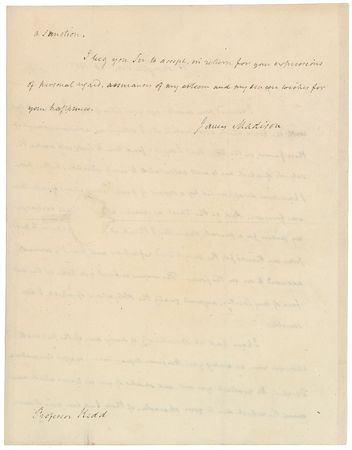 a sanction.
I beg you Sir to accept, in return for your expressions
of personal regard, assurances of my esteem and my sincere wishes for
your happiness.
James Madison
Professor Hedd